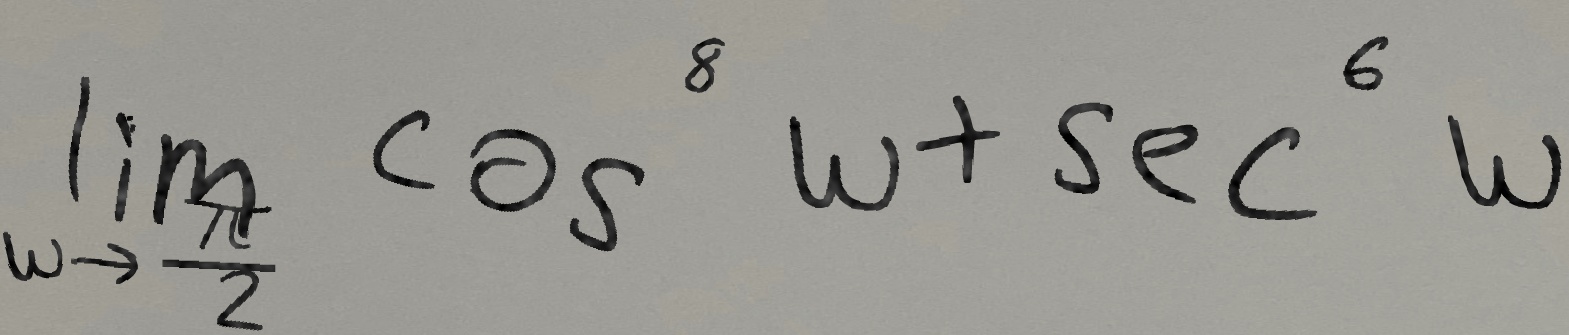 \lim_{w \to \frac{\pi}{2}} \cos^8 w + \sec^6 w